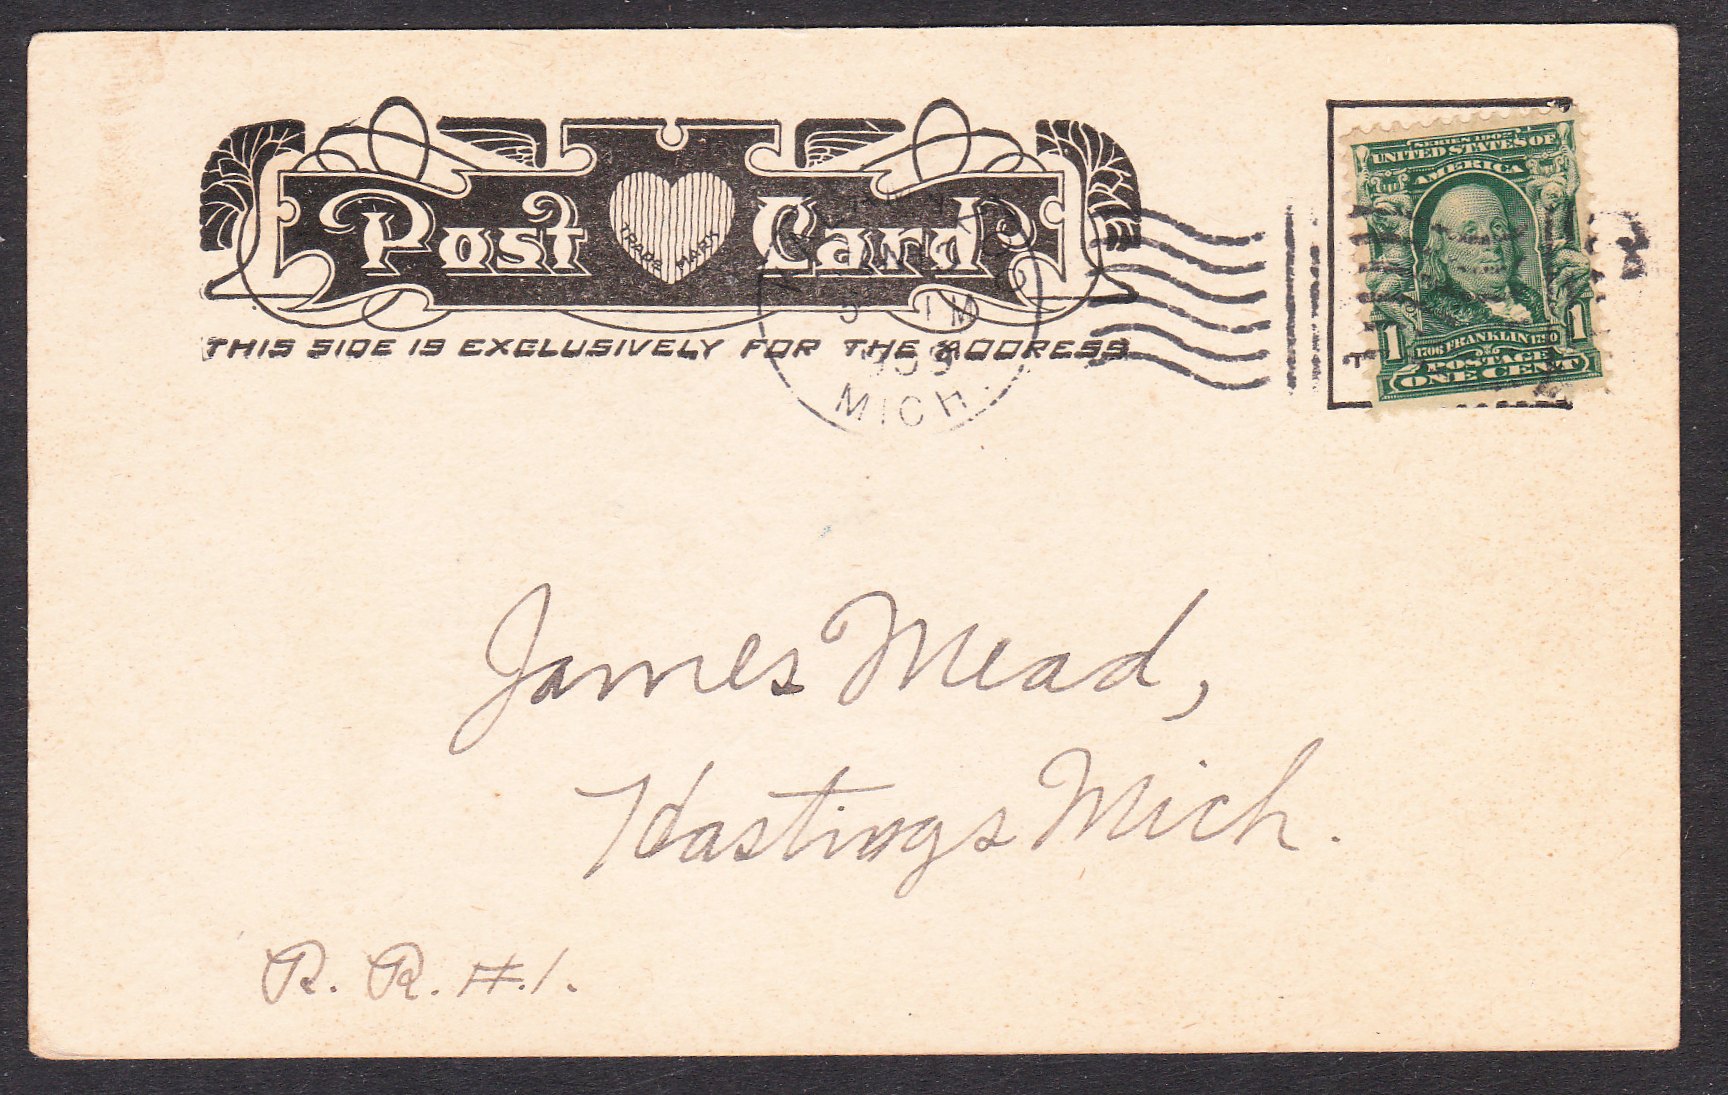 Post Card
TRADE MARK
THIS SIDE IS EXCLUSIVELY FOR THE ADDRESS
MICH.
SERIES 1902
UNITED STATES OF
AMERICA
1706 FRANKLIN 1790
1 POSTAGE 1
ONE CENT
James Mead,
Hastings Mich.
R. R. #.1.